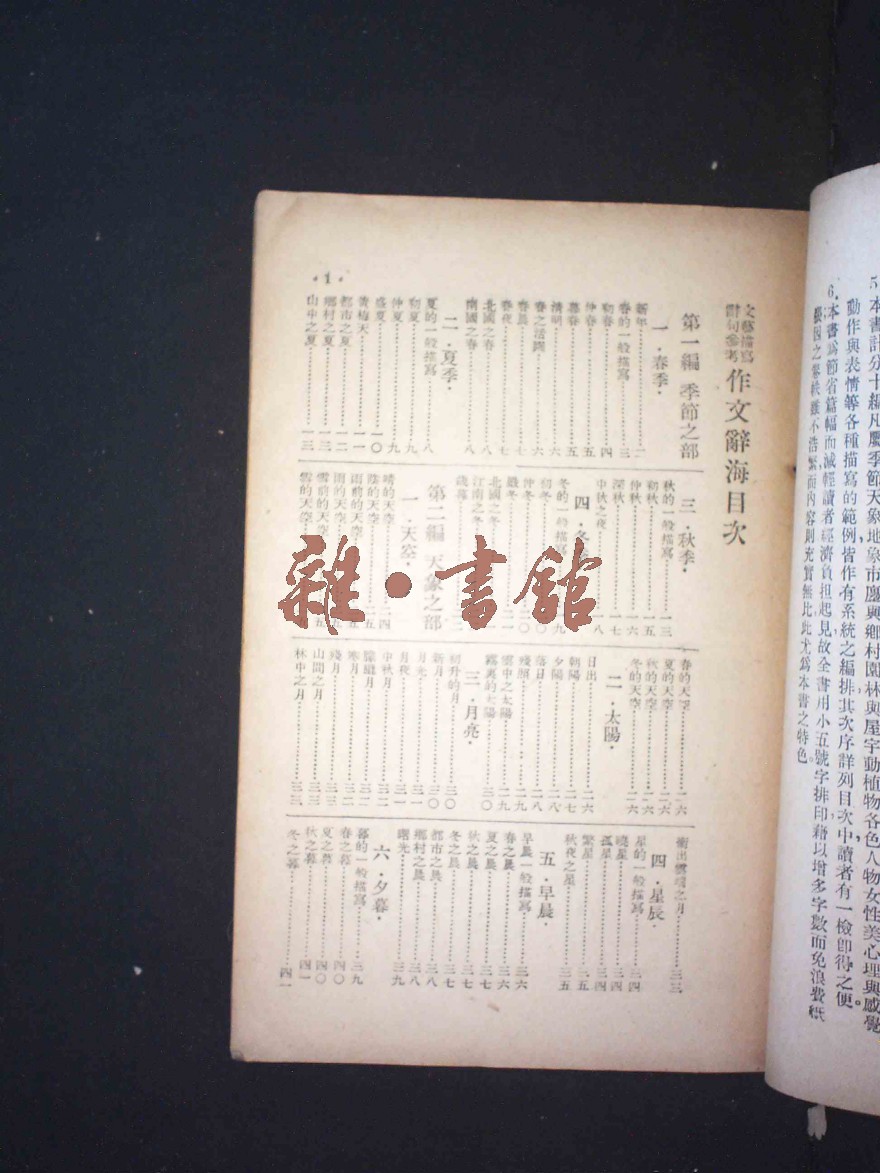 5.本書計分十編凡屬季節天象地象市廛與鄉村園林與屋宇動植物各色人物女性美心理與感覺
動作與表情等各種描寫的範例皆作有系統之編排其次序詳列目次中讀者有一檢卽得之便。
6.本書爲節省篇幅而減輕讀者經濟負担起見故全書用小五號字排印藉以增多字數而免浪費紙
之篇帙雖不浩繁而內容則充實無比此尤爲本書之特色。
文藝描寫
辭句參考
作文辭海目次
第一編 季節之部
一·春季·
新年
春的一般描寫
初春 四
仲春 五
暮春 五
清明 六
春之活園 六
春晨 七
春夜 七
北國之春 八
南國之春 八
二·夏季·
夏的一般描寫 八
初夏 九
仲夏 九
盛夏 一〇
黃梅天 一一
都市之夏 一二
鄉村之夏 一三
山中之夏 一三
三·秋季·
秋的一般描寫 一三
初秋 一五
仲秋 一六
深秋 一七
中秋之夜 一八
四·冬
冬的一般描寫
初冬
仲冬
嚴冬
北國之冬
江南之冬
歲暮
第二編 天象之部
一·天空·
晴的天空 二四
陰的天空
雨前的天空
雨的天空
雪前的天空
雪的天空
春的天空 二六
夏的天空 二六
秋的天空 二六
冬的天空 二六
二·太陽·
日出 二六
朝陽 二七
夕陽 二八
落日 二八
殘照 二九
雲中之太陽 二九
霧裏的太陽 三〇
三·月亮·
初升的月 三〇
新月 三〇
月光 三一
月夜 三一
中秋月 三二
朦朧月 三二
寒月 三二
殘月 三三
山間之月 三三
林中之月 三三
衝出雲端之月 三三
四·星辰·
星的一般描寫 三四
曉星 三四
孤星 三四
繁星 三五
秋夜之星 三五
五·早晨·
早晨一般描寫 三六
春之晨 三六
夏之晨 三七
秋之晨 三七
冬之晨 三七
都市之晨 三八
鄉村之晨 三八
曙光 三九
六·夕暮·
暮的一般描寫 三九
春之暮 四〇
夏之暮 四〇
秋之暮 四一
冬之暮 四一
·1·
雜·書館